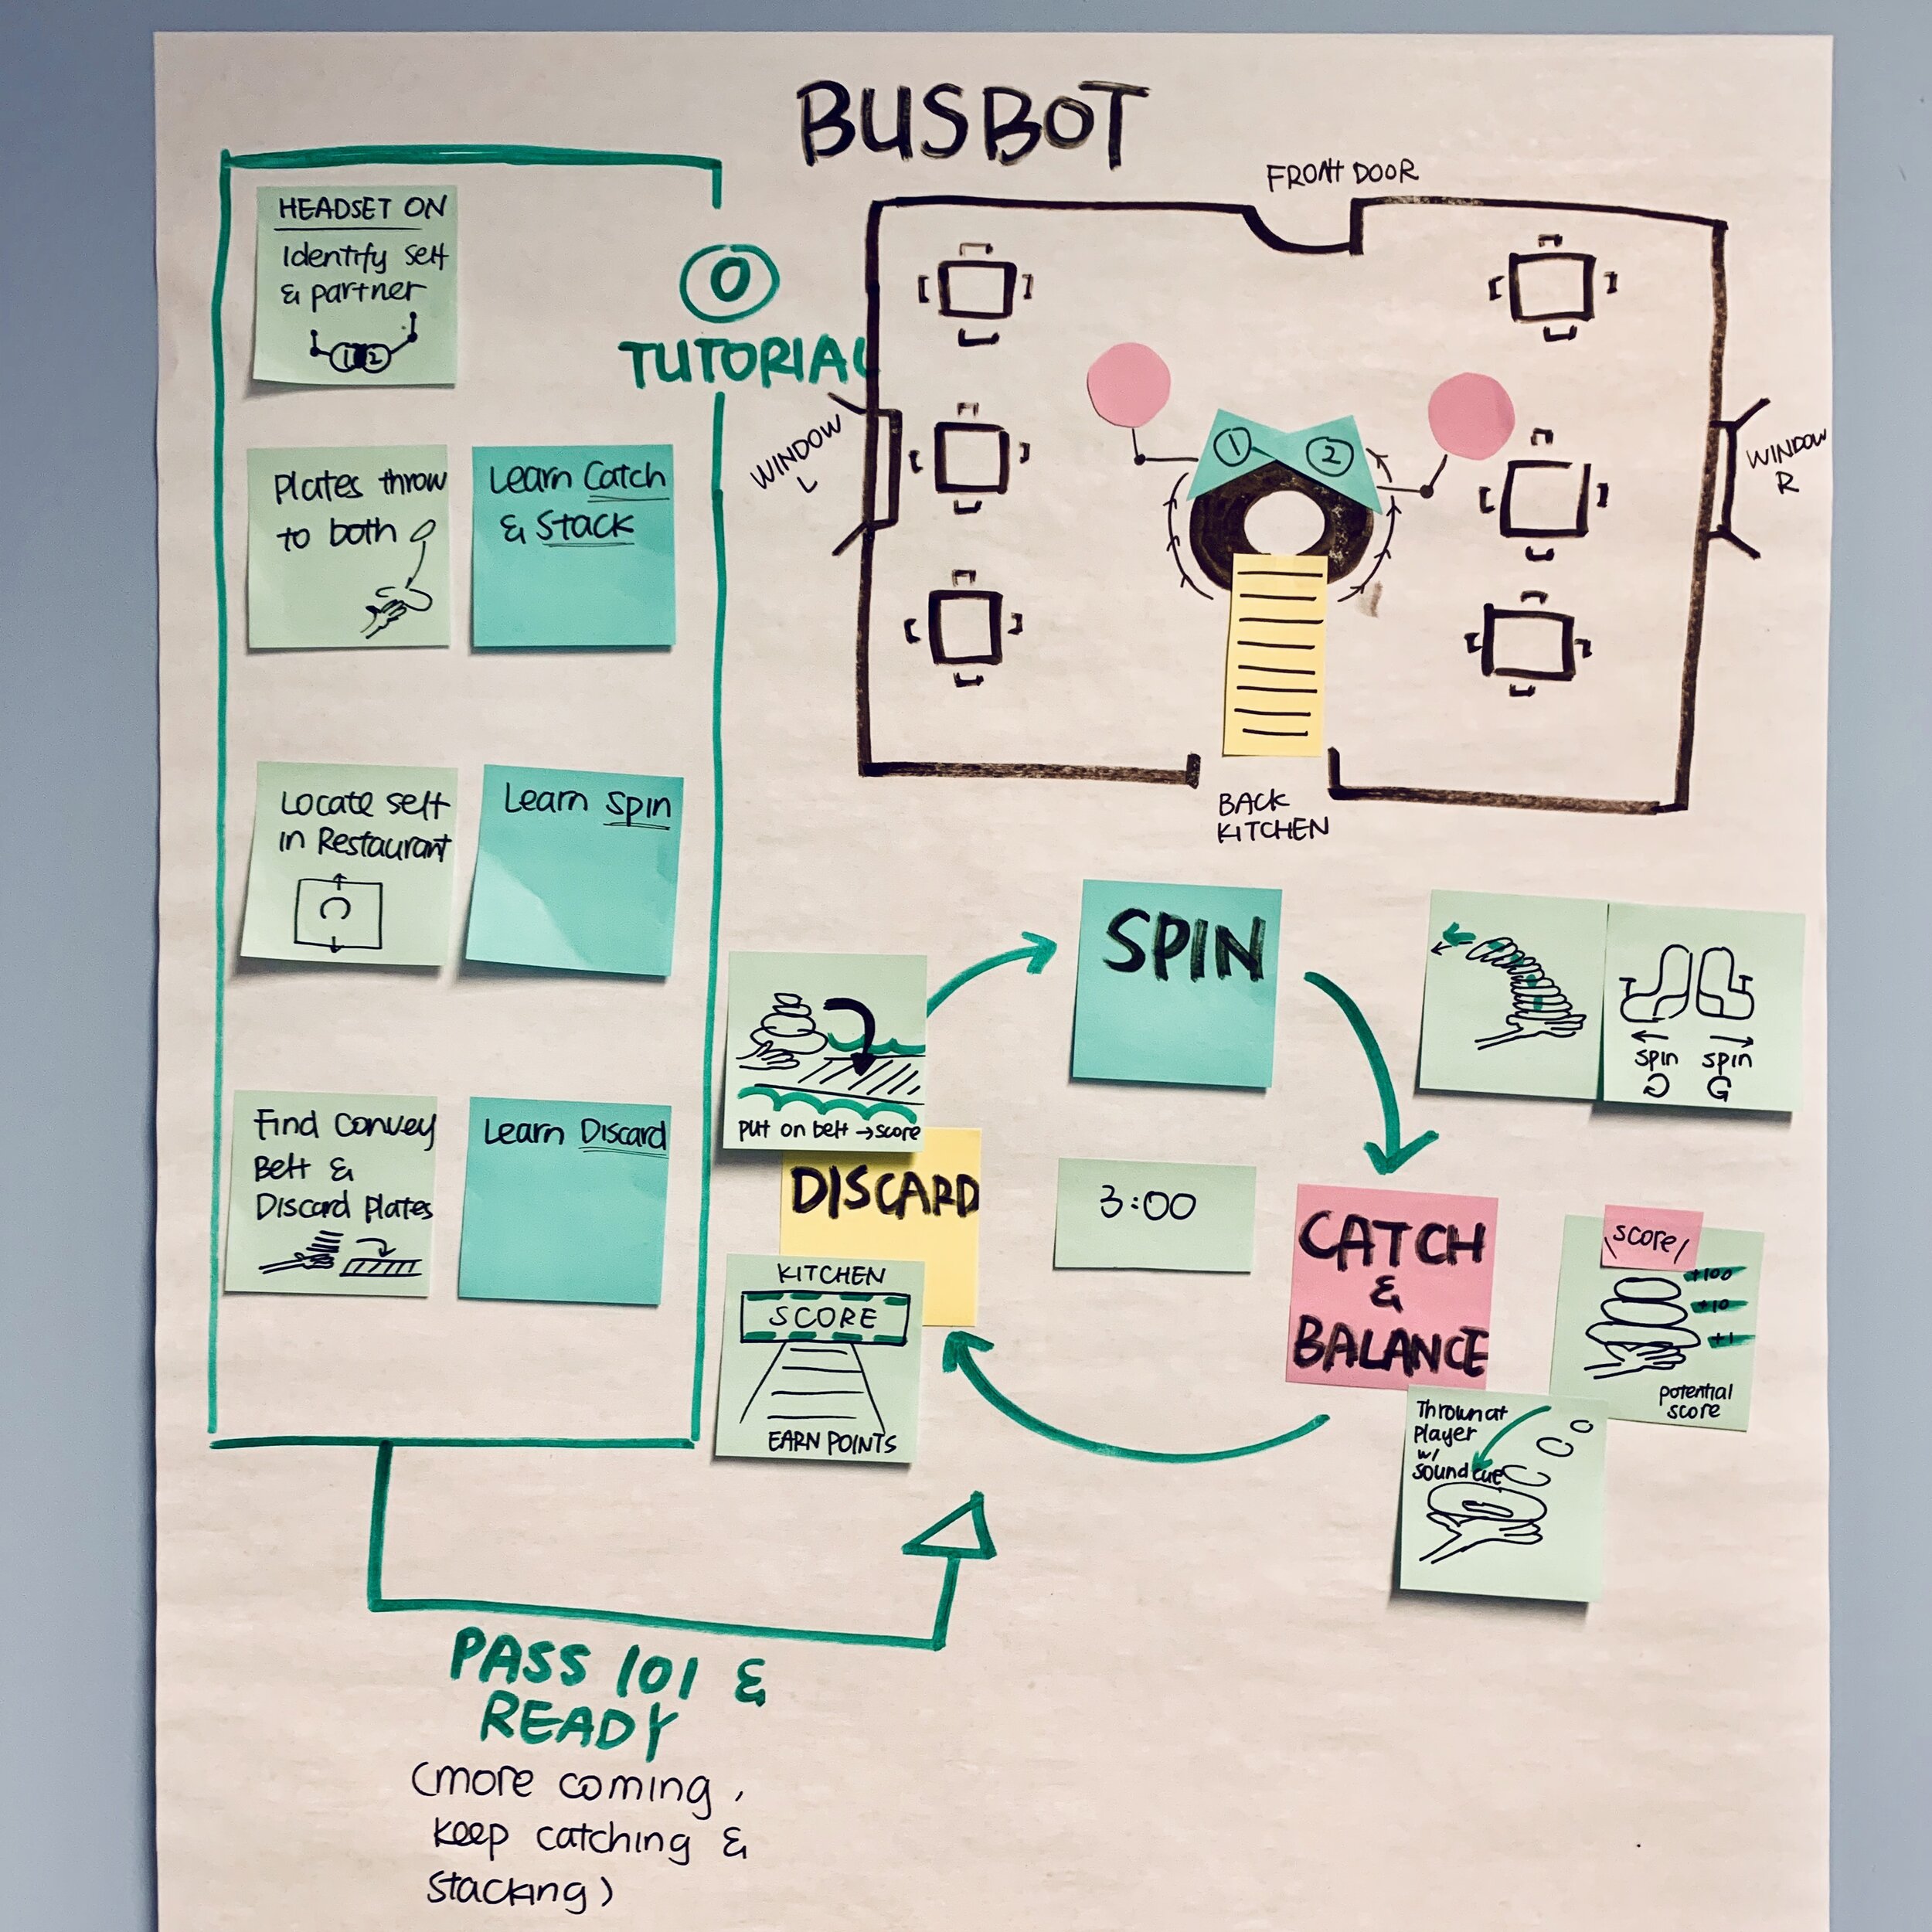 BUSBOT
HEADSET ON
Identify self
& partner
1 2
0
TUTORIAL
Plates throw
to both
Learn Catch
& Stack
Locate self
in Restaurant
Learn Spin
Find Convey
Belt &
Discard Plates
Learn Discard
FRONT DOOR
WINDOW
L
1 2
WINDOW
R
BACK
KITCHEN
SPIN
spin spin
put on belt → score
DISCARD
KITCHEN
SCORE
EARN POINTS
3:00
CATCH
&
BALANCE
\score/
+100
+10
+1
potential
score
Thrown at
player
w/
sound cue
PASS 101 &
READY
(more coming,
keep catching &
stacking)